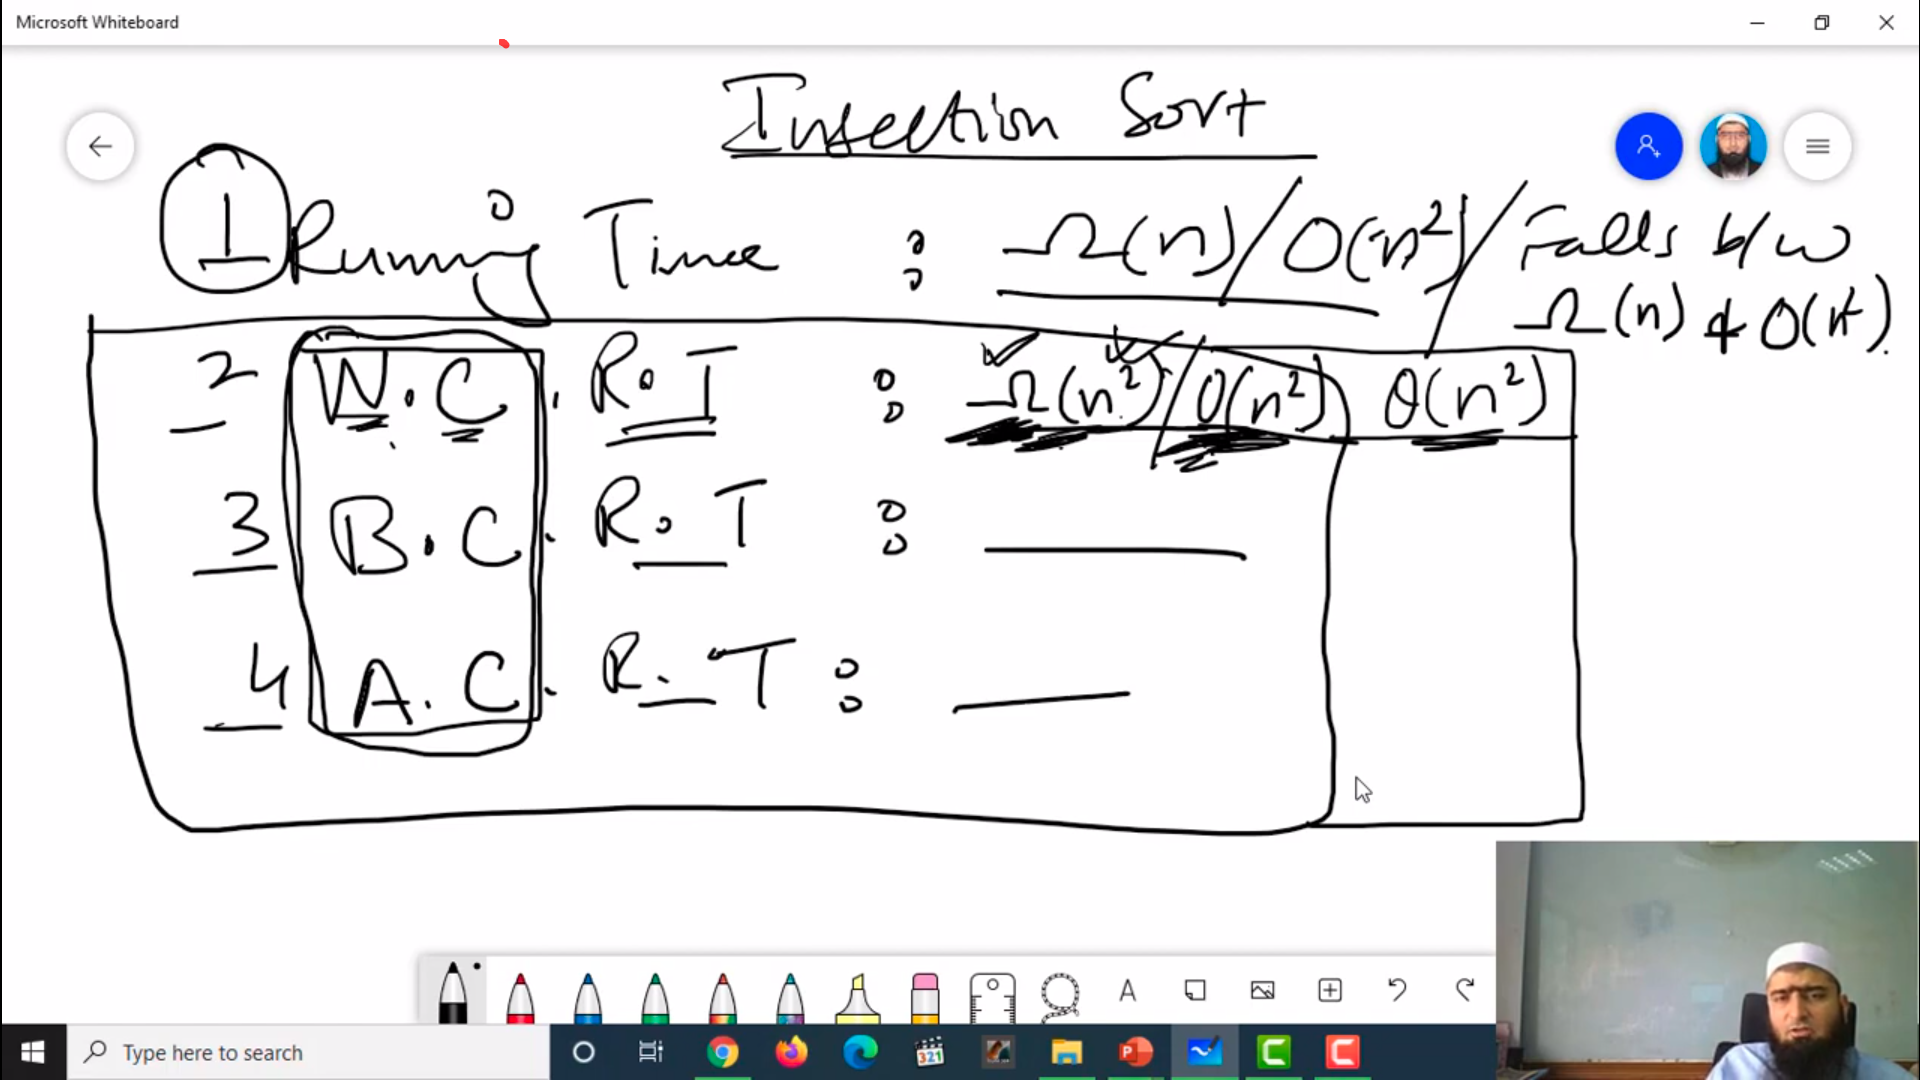 Microsoft Whiteboard
Insection Sort
1 Running Time : Ω(n) / O(n²) / Falls b/w
Ω(n) & O(n²).
2 W.C. R.T : Ω(n²) / O(n²) θ(n²)
3 B.C. R.T :
4 A.C. R.T :
A
321
Type here to search